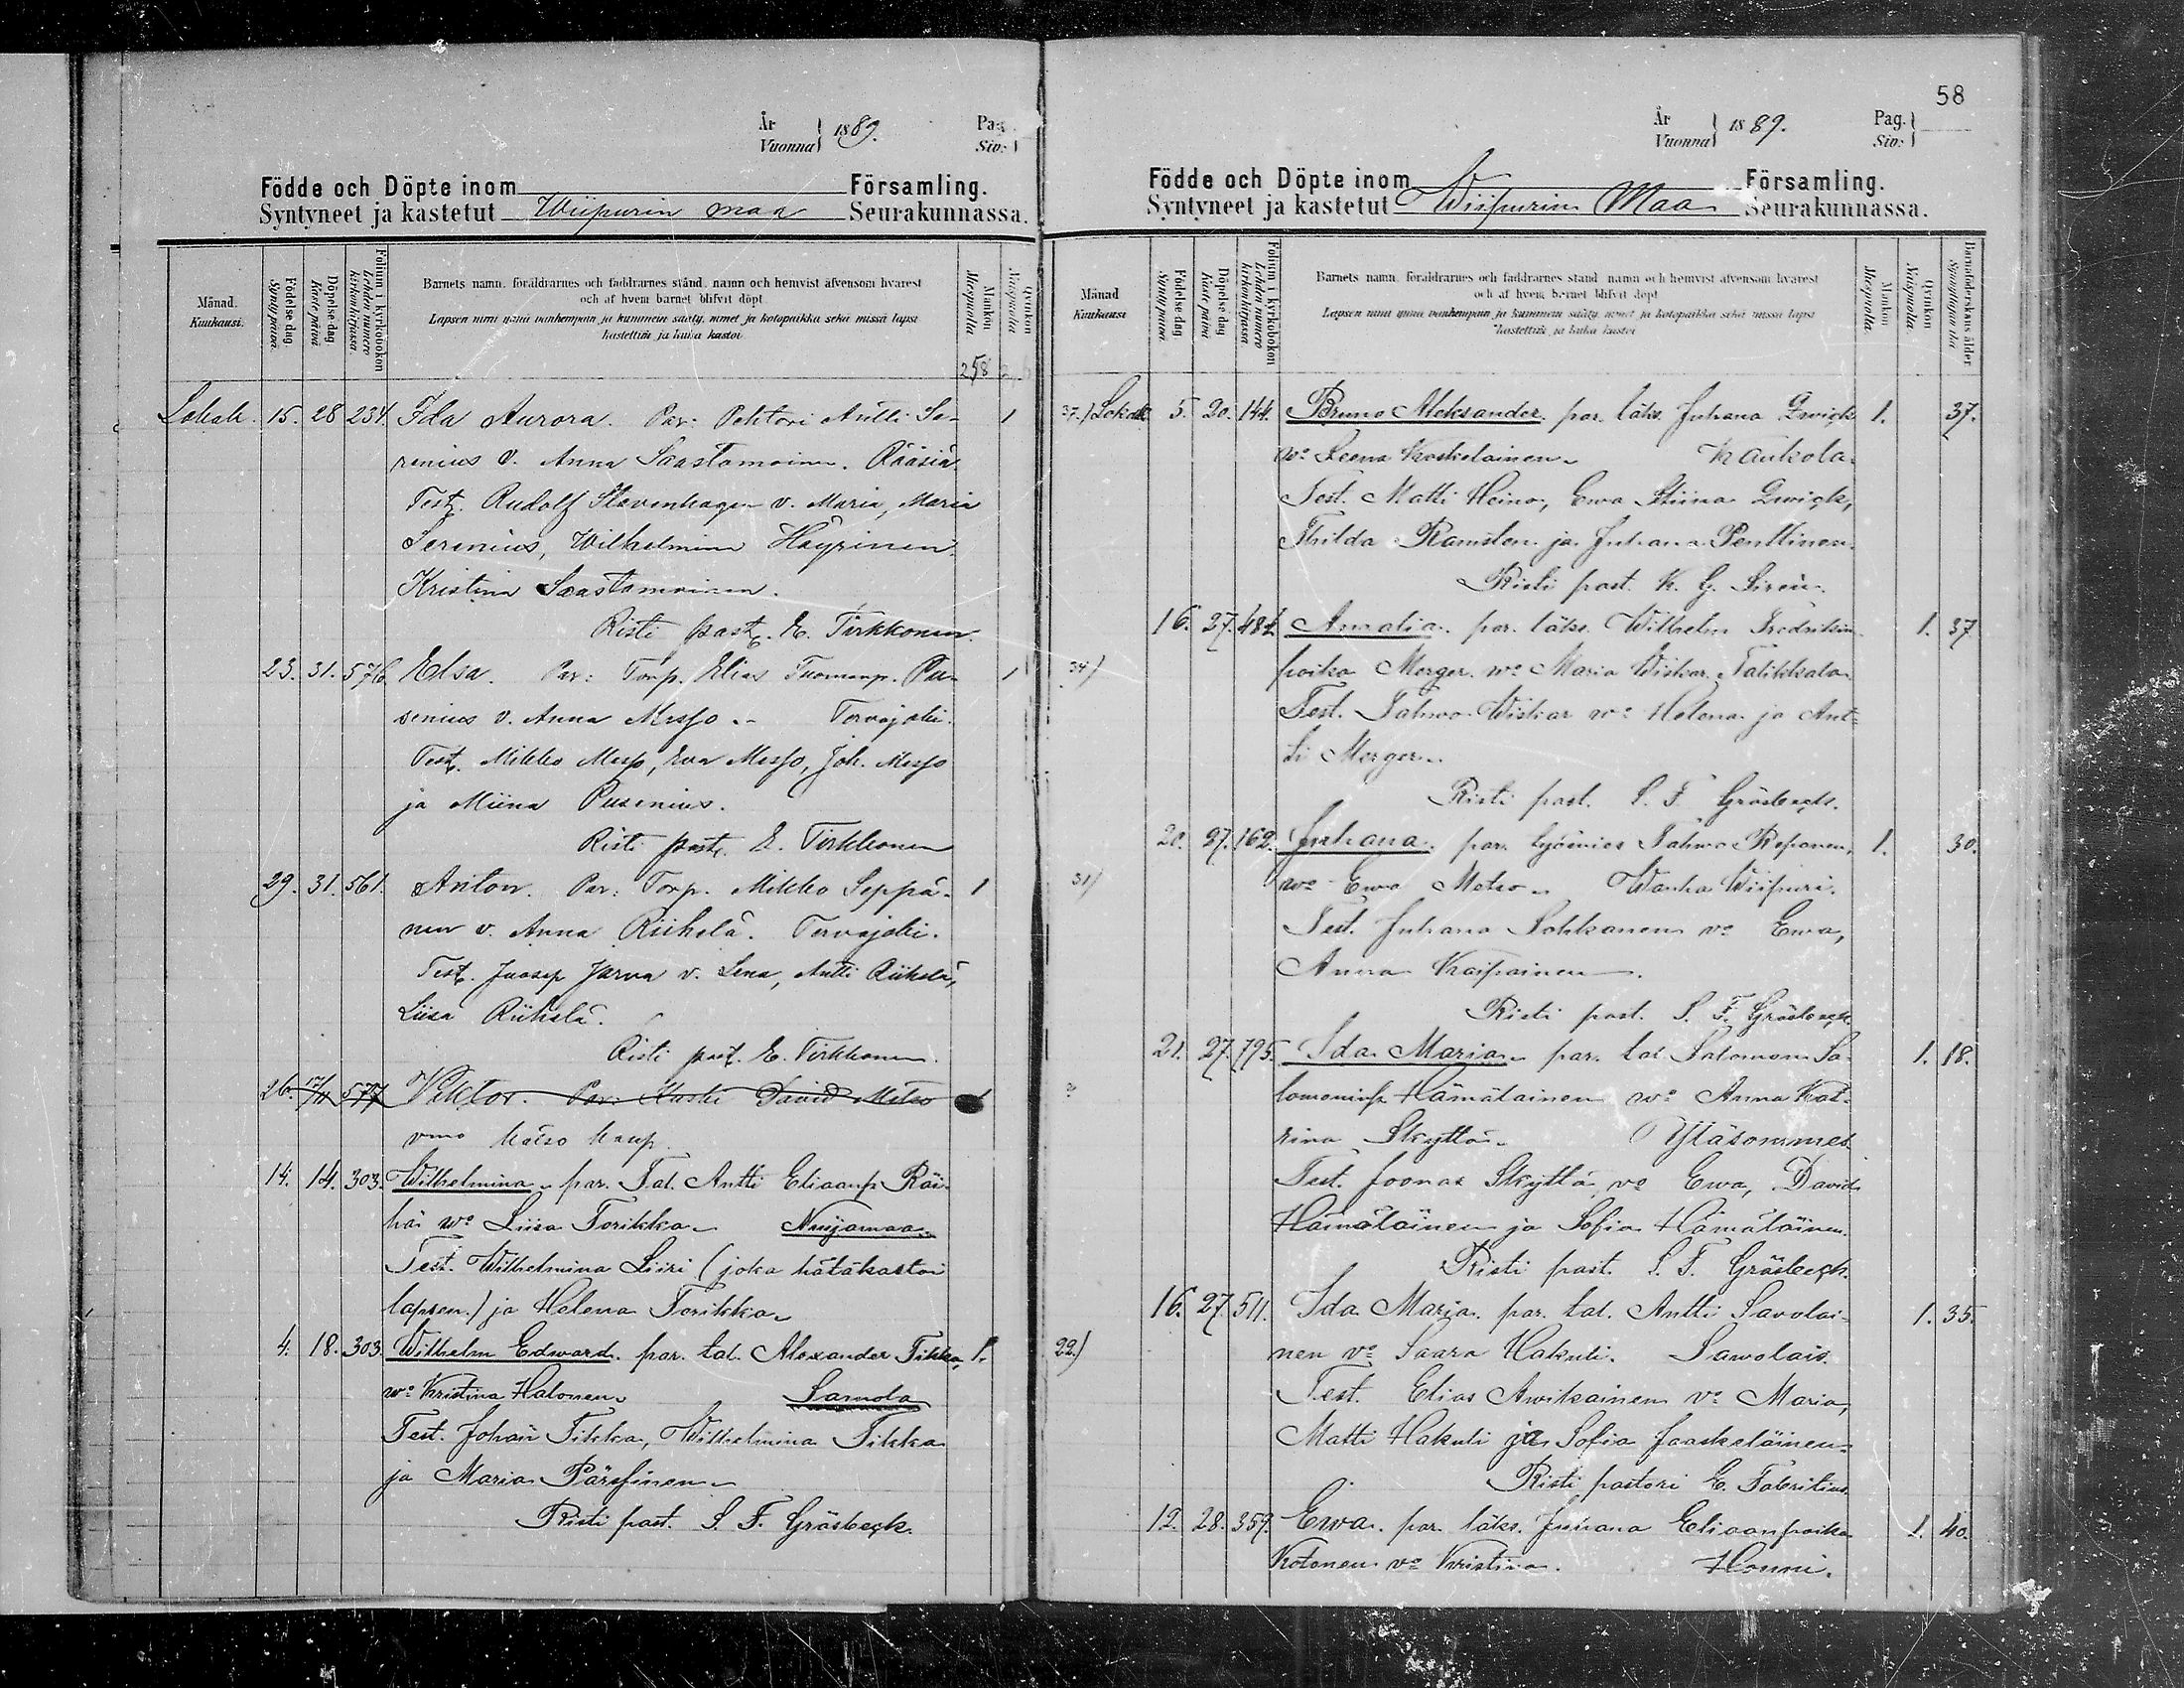 År
Vuonna } 1889.
Pag.
Siv:
Födde och Döpte inom Församling.
Syntyneet ja kastetut Wiipurin maa Seurakunnassa.
Månad.
Kuukausi.
Födelse dag.
Syntypäivä.
Döpelse dag.
Kaste-päivä
Folium i kyrkobokon
Lehden numero
kirkonkirjassa.
Barnets namn, föräldrarnes och faddrarnes stånd, namn och hemvist äfvensom hvarest
och af hvem barnet blifvit döpt.
Lapsen nimi ynnä vanhempain ja kummein sääty, nimet ja kotopaikka sekä missä lapsi
kastettiin ja kuka kastoi.
Mankön
Miespuolta
Qvinkön
Naispuolta
258
Lokak. 15. 28 234. Ida Aurora. Par: Pehtori Antti Se- 1
renius v. Anna Saastamoinen. Rääsiä.
Test. Rudolf Stavenhagen v. Maria, Maria
Serenius, Wilhelmina Häyrinen
Kristina Saastamoinen.
Risti past. E. Tirkkonen.
23. 31. 576. Elsa. Par: Torp. Elias Tuomanp. Pu- 1
senius v. Anna Messo. Tervajoki.
Test. Mikko Messo, Eva Messo, Joh. Messo
ja Miina Pusenius.
Risti past. E. Tirkkonen
29. 31. 561. Anton. Par: Torp. Mikko Seppä- 1
nen v. Anna Riihelä. Tervajoki.
Test. Juosep Jarva v. Lena, Antti Riihelä,
Liisa Riihelä.
Risti past. E. Tirkkonen.
26. 17/11 577 Viktor. Par: Kaski David Metso
vmo Katso kaup
14. 14. 303. Wilhelmina par. Tal. Antti Eliaanp. Räi-
hä wo Liisa Torikka Nuijamaa
Test. Wilhelmina Liiri (joka hätäkastoi
lapsen.) ja Helena Torikka
4. 18. 303. Wilhelm Edward. par. tal. Alexander Tikka, 1.
wo Kristina Halonen Samola
Test. Johan Tikka, Wilhelmina Tikka
ja Maria Pärssinen
Risti past. S. F. Gräsbeck.
58
År
Vuonna } 1889.
Pag.
Siv:
Födde och Döpte inom Församling.
Syntyneet ja kastetut Wiipurin Maa Seurakunnassa.
Månad
Kuukausi
Födelse dag.
Syntypäivä.
Döpelse dag
Kaste päivä
Folium i kyrkobokon
Lehden numero
kirkonkirjassa
Barnets namn, föräldrarnes och faddrarnes stånd namn och hemvist äfvensom hvarest
och af hvem barnet blifvit döpt
Lapsen nimi ynnä vanhempain ja kummein sääty, nimet ja kotopaikka sekä missä lapsi
kastettiin ja kuka kastoi
Mankön
Miespuolta.
Qvinkön
Naispuolta.
Barnaföderskans ålder
Synnyttäjän ikä
37.) Lokak 5. 20. 144. Bruno Aleksander. par. läks. Juhana Qwick 1. 37.
wo Leena Koskelainen Kaukola.
Test. Matti Heino, Ewa Stiina Qwick,
Thilda Ramsten ja Juhana Penttinen.
Risti past. K. G. Sirén.
16. 27. 484. Amalia. par. läks. Wilhelm Fredrikin 1. 37
34) poika Merger. wo Maria Wiskar. Talikkala
Test. Tahwo Wiskar wo Helena ja Ant-
ti Merger.
Risti past. S. F. Gräsbeck.
20. 27. 162. Juhana. par. työmies Tahwo Reponen, 1. 30.
31) wo Ewa Metso Wanha Wiipuri.
Test. Juhana Sohkanen vo Ewa,
Anna Kaipainen.
Risti past. S. F. Gräsbeck
21. 27. 795. Ida Maria par. tal. Salomon Sa- 1. 18.
lomoninp. Hämäläinen wo Anna Kat-
rina Skyttä Yläsommee
Test. Joonas Skyttä vo Ewa, David
Hämäläinen ja Sofia Hämäläinen.
Risti past. S. F. Gräsbeck.
16. 27. 511. Ida Maria. par. tal. Antti Savolai- 1. 35.
22.) nen vo Saara Hakuli. Sawolais.
Test. Elias Awikainen vo Maria,
Matti Hakuli ja Sofia Jaaskeläinen
Risti pastori E. Fabritius.
12. 28. 359. Ewa. par. läks. Juhana Eliaanpoika 1. 40.
Kotonen vo Kristina. Hounni.